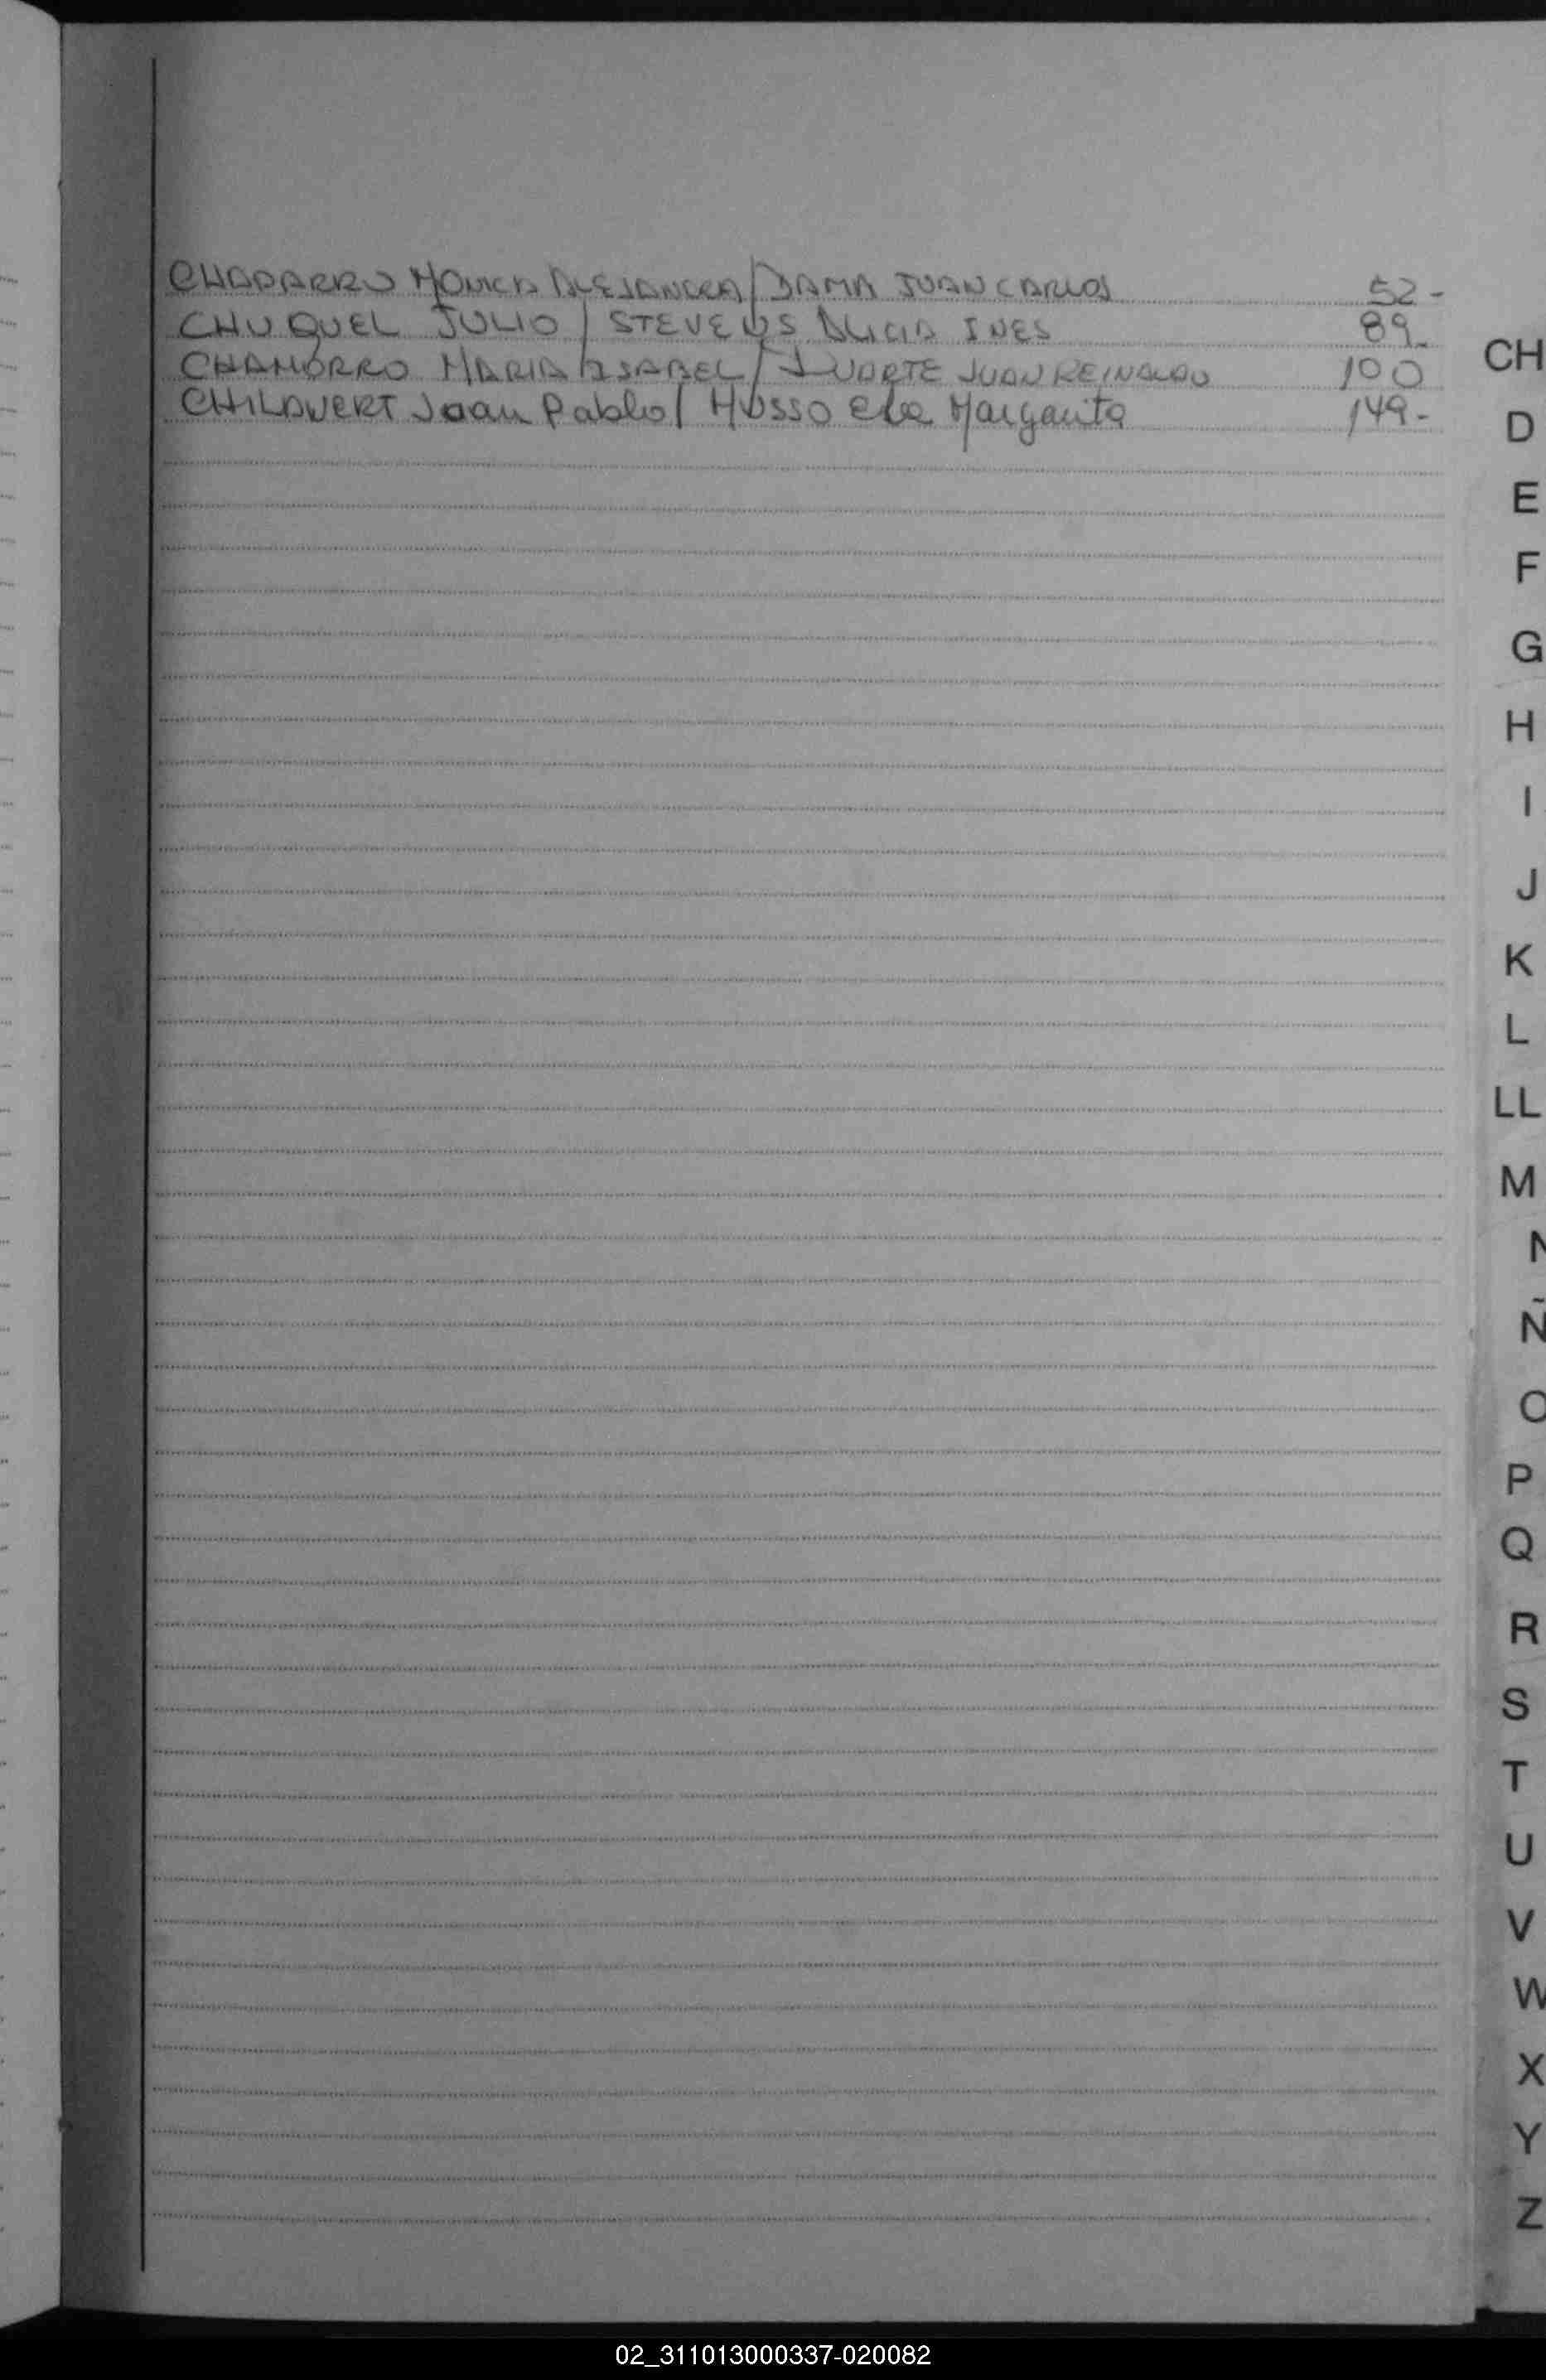 CHAPARRO MONICA ALEJANDRA / DAMA JUAN CARLOS 52-
CHUQUEL JULIO / STEVENS ALICIA INES 89-
CHAMORRO MARIA ISABEL / DUARTE JUAN REINALDO 100
CHILAVERT Juan Pablo / Musso Elva Margarita 149-
CH
D
E
F
G
H
I
J
K
L
LL
M
N
Ñ
O
P
Q
R
S
T
U
V
W
X
Y
Z
02_311013000337-020082